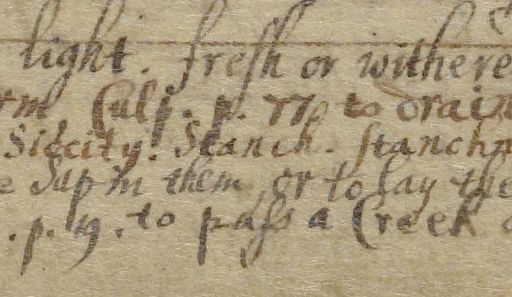 light. fresh or withere
Culp. p. 77. to drain
Siccity. Stanch. stanch
Sap in them, or to lay the
. p. 19. to pass a Creek